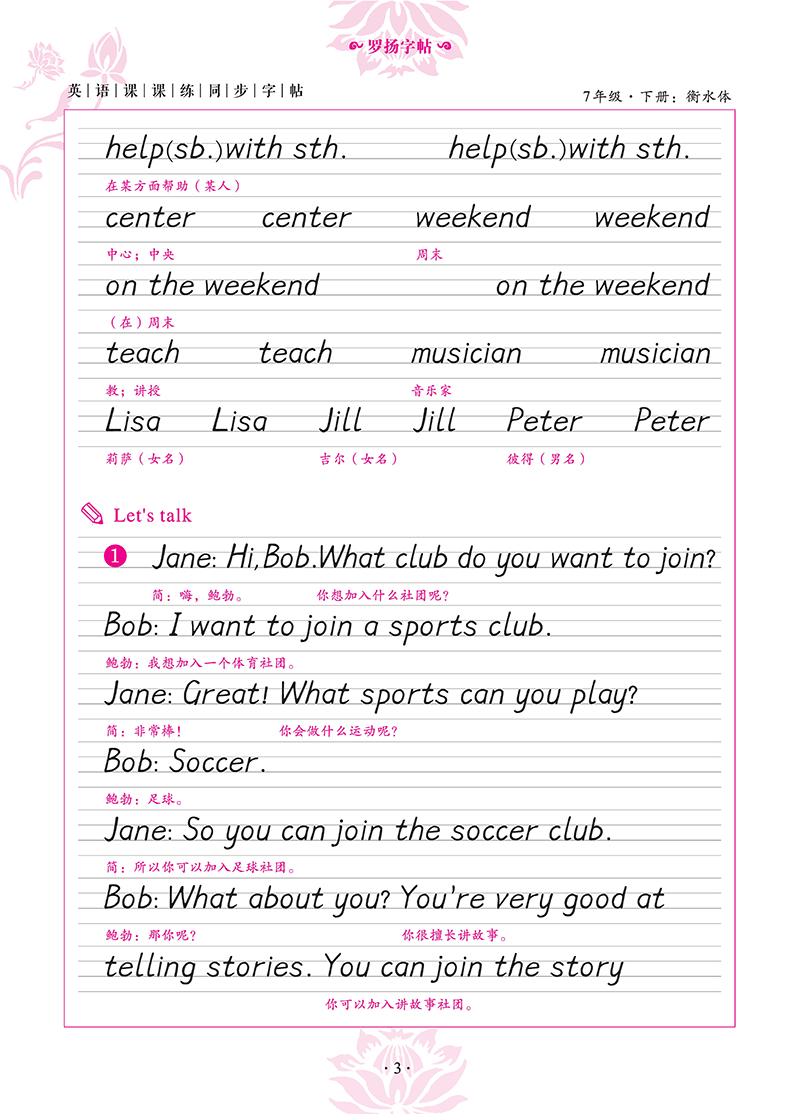 罗扬字帖
英|语|课|课|练|同|步|字|帖
7年级·下册：衡水体
help(sb.)with sth. help(sb.)with sth.
在某方面帮助（某人）
center center weekend weekend
中心；中央 周末
on the weekend on the weekend
（在）周末
teach teach musician musician
教；讲授 音乐家
Lisa Lisa Jill Jill Peter Peter
莉萨（女名） 吉尔（女名） 彼得（男名）
Let's talk
1 Jane: Hi,Bob.What club do you want to join?
简：嗨，鲍勃。 你想加入什么社团呢？
Bob: I want to join a sports club.
鲍勃：我想加入一个体育社团。
Jane: Great! What sports can you play?
简：非常棒！ 你会做什么运动呢？
Bob: Soccer.
鲍勃：足球。
Jane: So you can join the soccer club.
简：所以你可以加入足球社团。
Bob: What about you? You're very good at
鲍勃：那你呢？ 你很擅长讲故事。
telling stories. You can join the story
你可以加入讲故事社团。
·3·